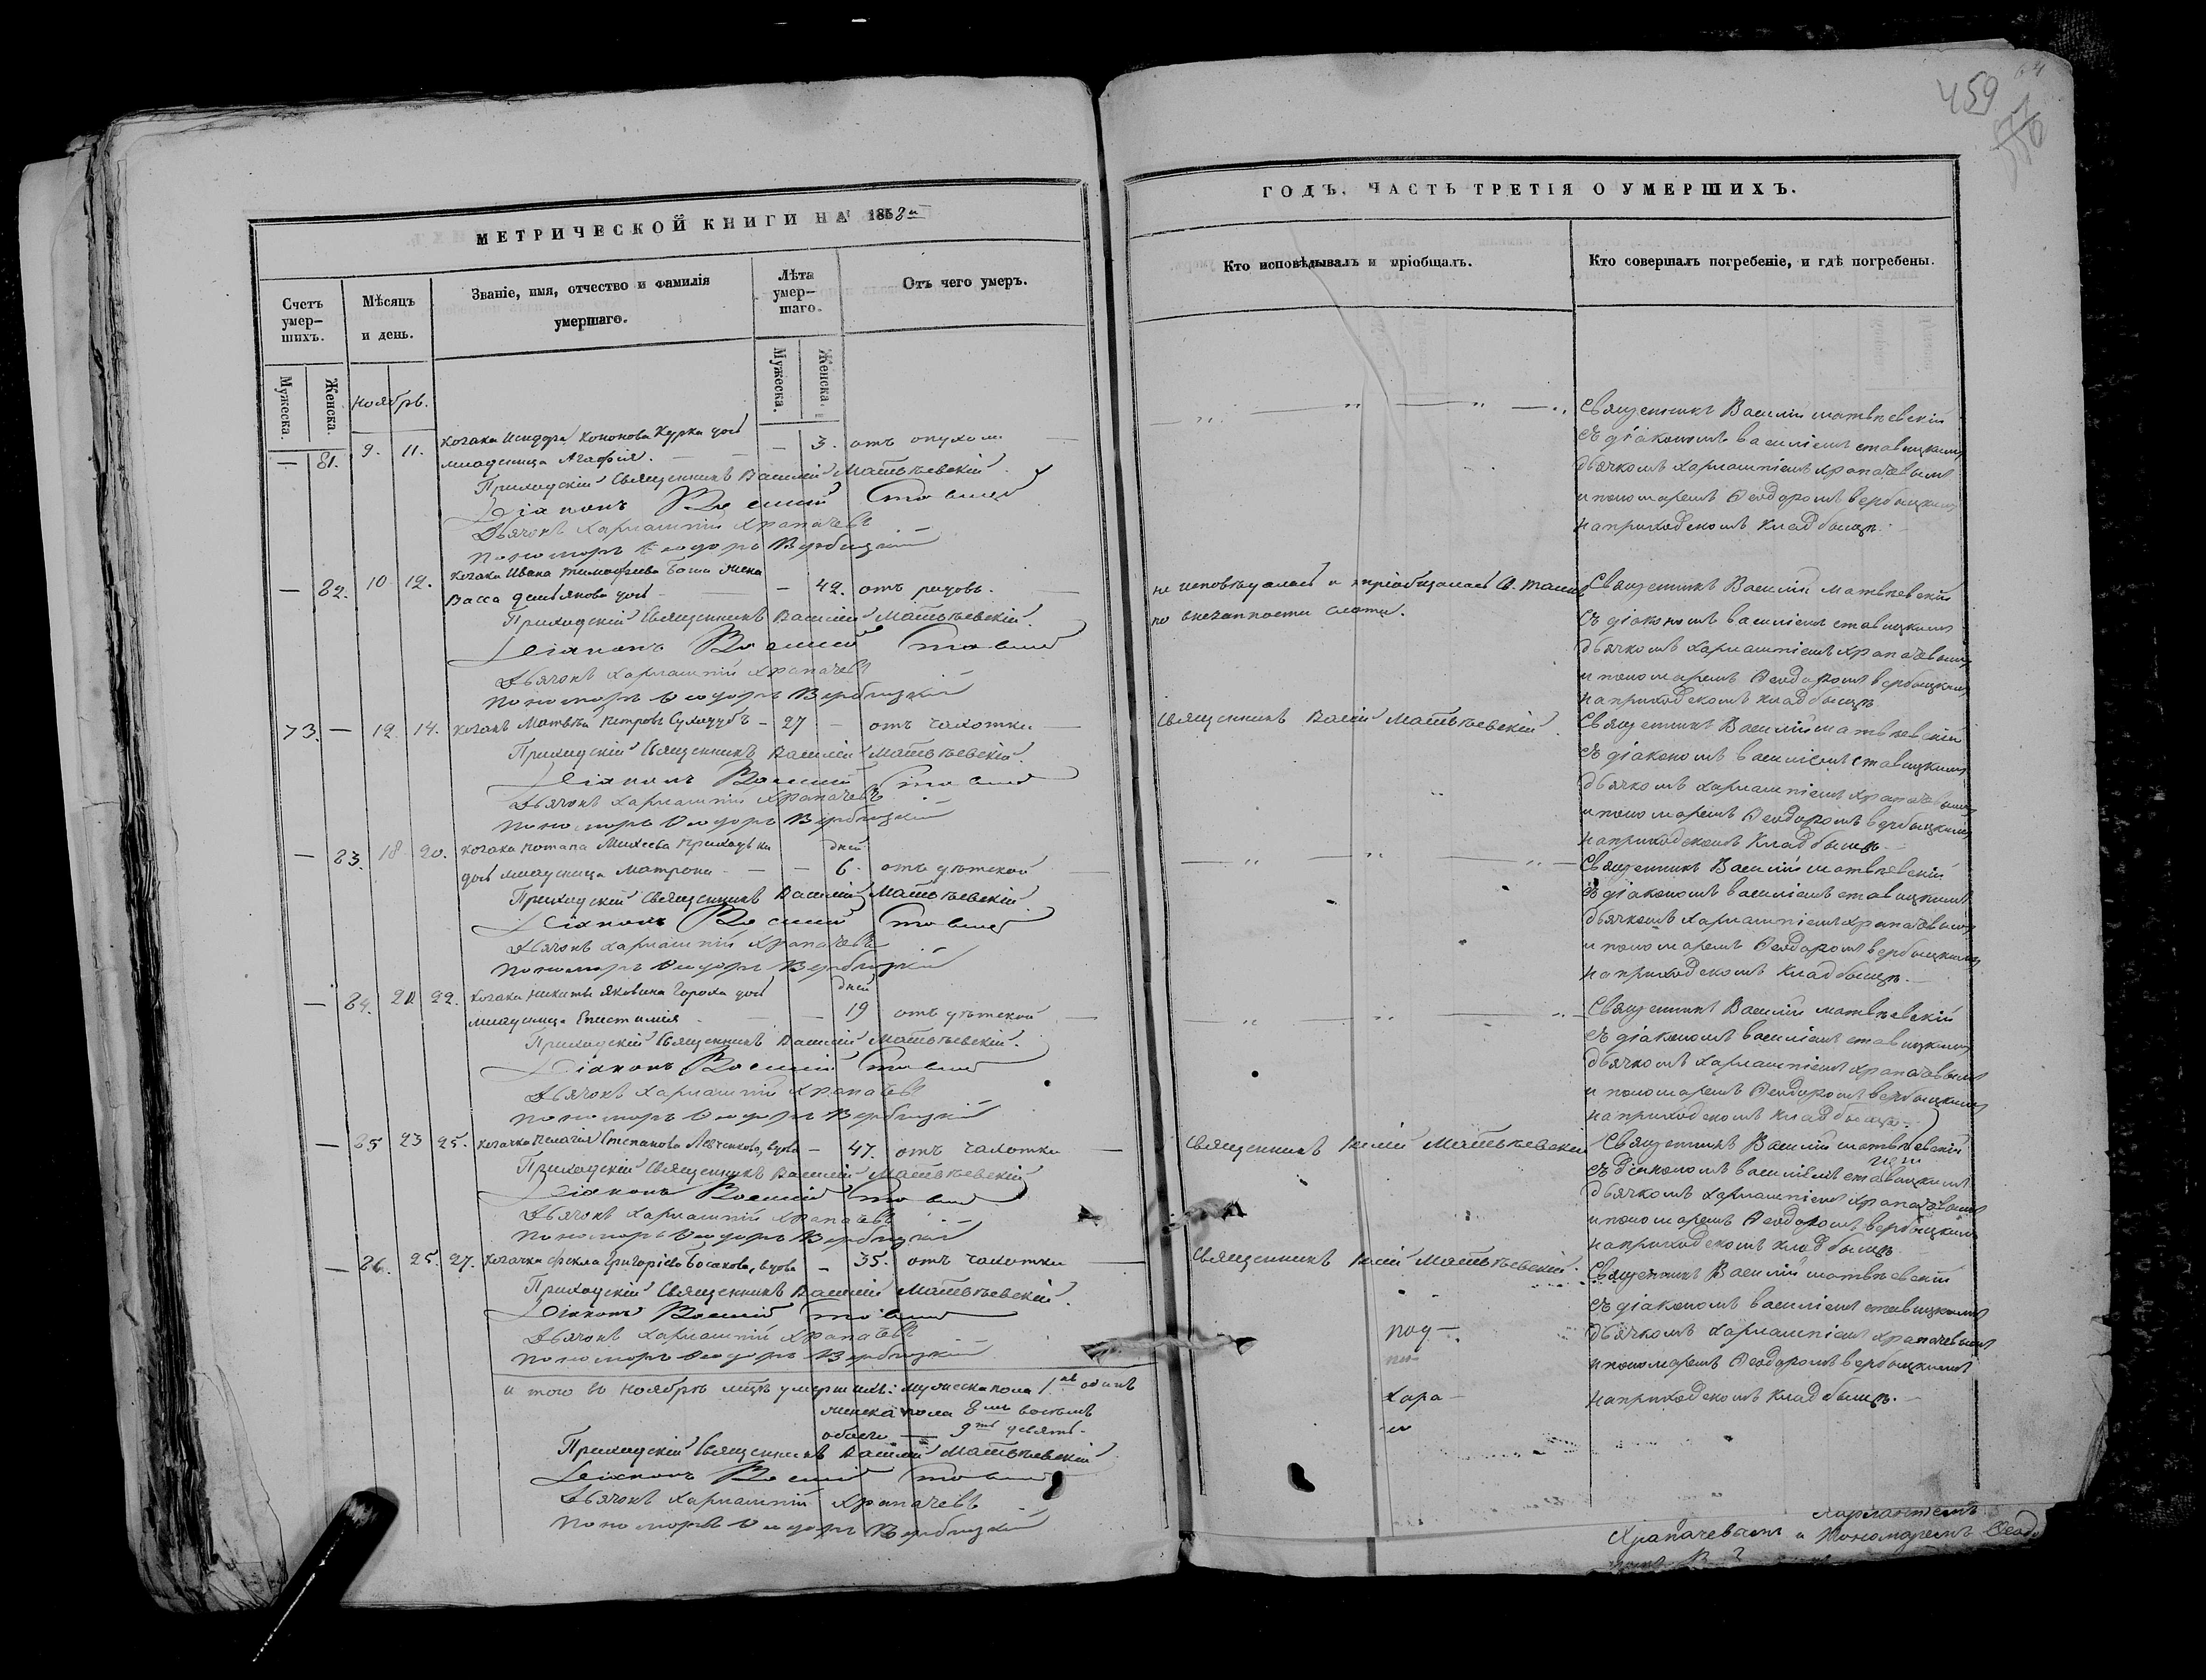 459
МЕТРИЧЕСКОЙ КНИГИ НА 1858й
Счетъ умер-
шихъ.
Мѣсяцъ
и день.
Званіе, имя, отчество и фамилія
умершаго.
Лѣта
умер-
шаго.
Отъ чего умеръ.
Мужеска.
Женска.
Ноябрь.
Мужеска.
Женска.
— 81. 9. 11. козака Исидора Кононова Курка дочь — 3. отъ опухоли
младеница Агафія.
Приходскій Священникъ Василій Матвѣевскій
Діаконъ Василій
Дьячокъ Харлампій Храпачевъ
Пономарь Ѳеодоръ Вербицкій
— 82. 10 12. козака Ивана Тимофеева жена
Васса Демьянова дочь — 42. отъ родовъ.
Приходскій Священникъ Василій Матвѣевскій.
Діаконъ Василій
Дьячокъ Харлампій Храпачевъ
Пономарь Ѳеодоръ Вербицкій
73. — 12. 14. козакъ Матвѣй Петровъ Сухозубъ — 27 — отъ чахотки
Приходскій Священникъ Василій Матвѣевскій.
Діаконъ Василій
Дьячокъ Харлампій Храпачевъ
Пономарь Ѳеодоръ Вербицкій
— 83. 18 20. козака Потапа Михеева Приходьки дней
дочь младеница Матрона — — 6. отъ дѣтской
Приходскій Священникъ Василій Матвѣевскій
Діаконъ Василій
Дьячокъ Харлампій Храпачевъ
Пономарь Ѳеодоръ Вербицкій
— 84. 21 22. козака Никиты Яковина Гороха дочь дней
младеница Епистимія — — 19 отъ дѣтской
Приходскій Священникъ Василій Матвѣевскій.
Діаконъ Василій
Дьячокъ Харлампій Храпачевъ
Пономарь Ѳеодоръ Вербицкій
— 85 23 25. козачка Пелагія Степанова Левченкова, вдова — 47. отъ чахотки
Приходскій Священникъ Василій Матвѣевскій
Діаконъ Василій
Дьячокъ Харлампій Храпачевъ
Пономарь Ѳеодоръ Вербицкій
— 86. 25. 27. козачка Фекла Григоріева Босакова, вдова — 35. отъ чахотки
Приходскій Священникъ Василій Матвѣевскій.
Діаконъ Василій
Дьячокъ Харлампій Храпачевъ
Пономарь Ѳеодоръ Вербицкій
И того въ Ноябрѣ мцѣ умершихъ: мужеска пола 1нъ одинъ
женска пола 8мь восемь
обоего — 9ть девять
Приходскій Священникъ Василій Матвѣевскій
Діаконъ Василій
Дьячокъ Харлампій Храпачевъ
Пономарь Ѳеодоръ Вербицкій
ГОДЪ. ЧАСТЬ ТРЕТІЯ О УМЕРШИХЪ.
Кто исповѣдывалъ и пріобщалъ.
Кто совершалъ погребеніе, и гдѣ погребены.
Священникъ Василій Матвѣевскій
съ діакономъ Василіемъ Ставицкимъ
дьячкомъ Харлампіемъ Храпачевымъ
и пономаремъ Ѳеодоромъ Вербицкимъ
на приходскомъ кладбищѣ.
не исповѣдалась и не пріобщалась Св. Таинъ
по внезапности смерти.
Священникъ Василій Матвѣевскій
съ діакономъ Василіемъ Ставицкимъ
дьячкомъ Харлампіемъ Храпачевымъ
и пономаремъ Ѳеодоромъ Вербицкимъ
на приходскомъ кладбищѣ
Священникъ Василій Матвѣевскій.
Священникъ Василій Матвѣевскій
съ діакономъ Василіемъ Ставицкимъ
дьячкомъ Харлампіемъ Храпачевымъ
и пономаремъ Ѳеодоромъ Вербицкимъ
на приходскомъ кладбищѣ
Священникъ Василій Матвѣевскій
съ діакономъ Василіемъ Ставицкимъ
дьячкомъ Харлампіемъ Храпачевымъ
и пономаремъ Ѳеодоромъ Вербицкимъ
на приходскомъ кладбищѣ.
Священникъ Василій Матвѣевскій
съ діакономъ Василіемъ Ставицкимъ
дьячкомъ Харлампіемъ Храпачевымъ
и пономаремъ Ѳеодоромъ Вербицкимъ
на приходскомъ кладбищѣ
Священникъ Матвѣевскій
Священникъ Василій Матвѣевскій
съ діакономъ Василіемъ Ставицкимъ
дьячкомъ Харлампіемъ Храпачевымъ
и пономаремъ Ѳеодоромъ Вербицкимъ
на приходскомъ кладбищѣ
Священникъ Матвѣевскій.
Священникъ Василій Матвѣевскій
съ діакономъ Василіемъ Ставицкимъ
дьячкомъ Харлампіемъ Храпачевымъ
и пономаремъ Ѳеодоромъ Вербицкимъ
на приходскомъ кладбищѣ.
под—
хара—
Харлампіемъ
Храпачевымъ и Пономаремъ Ѳеодо